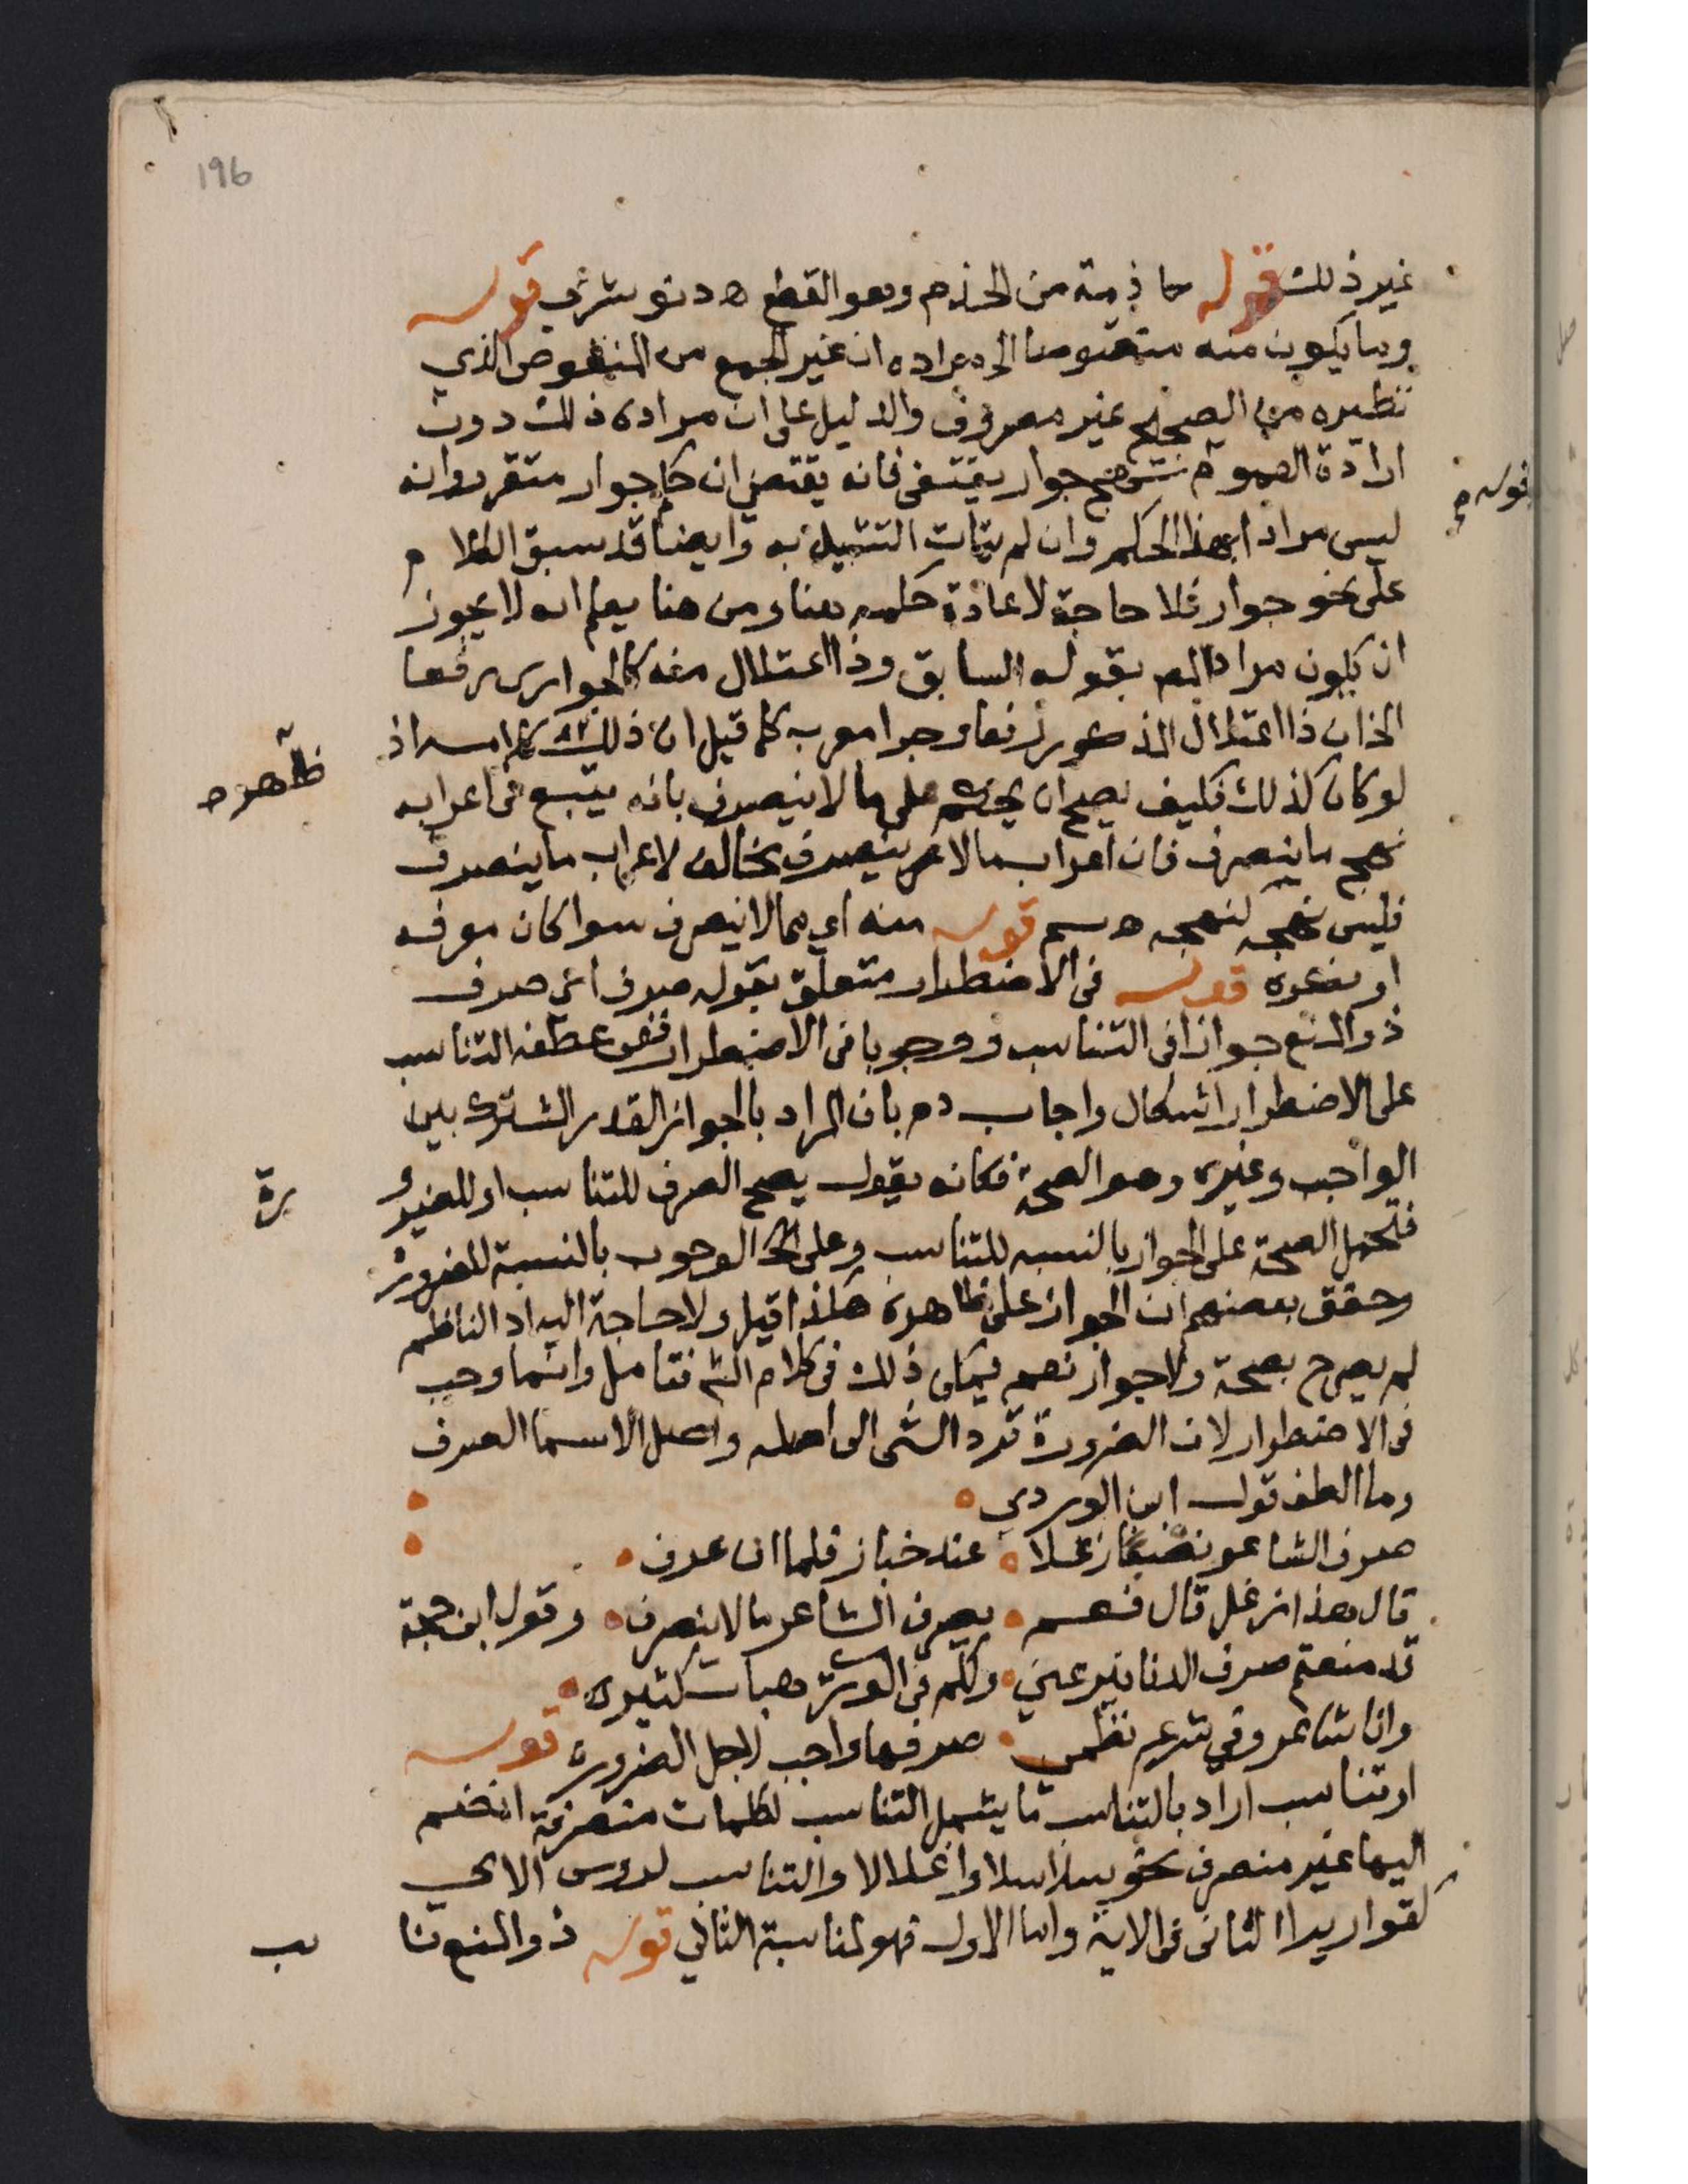 196
غير ذلك قوله حاذمة من الحذم وهو القطع اه دنوشري قوله
وما يكون منه منقوصا الخ مراده ان غير الجمع من المنقوص الذي
نظيره من الصحيح غير مصروف والدليل على ان مراده ذلك دون
ارادة العموم نهج جوار يقتفى فانه يقتضي ان حكم جوار متقرر وانه
قوله م
ليس مرادا بهذا الحكم وان لم يتات التمثيل به وايضا قد سبق الكلام
على نحو جوار فلا حاجة لاعادة حكمه هنا ومن هنا يعلم انه لا يجوز
ان يكون مراد المص بقوله السابق وذا اعتلال منه كالجواري رفعا
الخ ان ذا اعتلال المذكور رفعا وجرا معرب كما قيل ان ذلك كلامه اذ
ظاهره
لو كان كذلك فكيف يصح ان يحكم على ما لا ينصرف بانه يتبع في اعرابه
نهج ما ينصرف فان اعراب ما لا ينصرف يخالف لاعراب ما ينصرف
فليس نهجه كنهجه اه سم قوله منه اي مما لا ينصرف سوا كان معرفه
او نكره قوله في الاضطرار متعلق بقوله صرف اي صرف
ذو المنع جوازا في التناسب ووجوبا في الاضطرار ففي عطفه التناسب
على الاضطرار اشكال واجاب دم بان المراد بالجواز القدر المشترك بين
الواجب وغيره وهو الصحة فكانه يقول يصح الصرف للتناسب او للضرو
رة
فتحمل الصحة على الجواز بالنسبه للتناسب وعلى الوجوب بالنسبة للضرورة
وحقق بعضهم ان الجواز على ظاهره هكذا قيل ولا حاجة اليه اذ الناظم
لم يصرح بصحة ولا جواز نعم يمكن ذلك في كلام الش فتامل وانما وجب
في الاضطرار لان الضرورة ترد الشى الى اصله واصل الاسما الصرف
وما الطف قول ابن الوردي
صرف الشاعر نصفا زغلا عند خباز فلما ان عرف
قال هذا زغل قال نعم يصرف الشاعر ما لا ينصرف وقول ابن حجة
قد منعتم صرف الدنانير عني ولكم في الورى هبات كثيره
وانا شاعر وفي شرع نظمي صرفها واجب لاجل الضروره قوله
او تناسب اراد بالتناسب ما يشمل التناسب لكلمات منصرفة انضم
اليها غير منصرف نحو سلاسلا واغلالا والتناسب لرؤس الاي
كقواريرا الثاني في الاية واما الاول فهو لمناسبة الثاني قوله ذو المنع نا
ئب